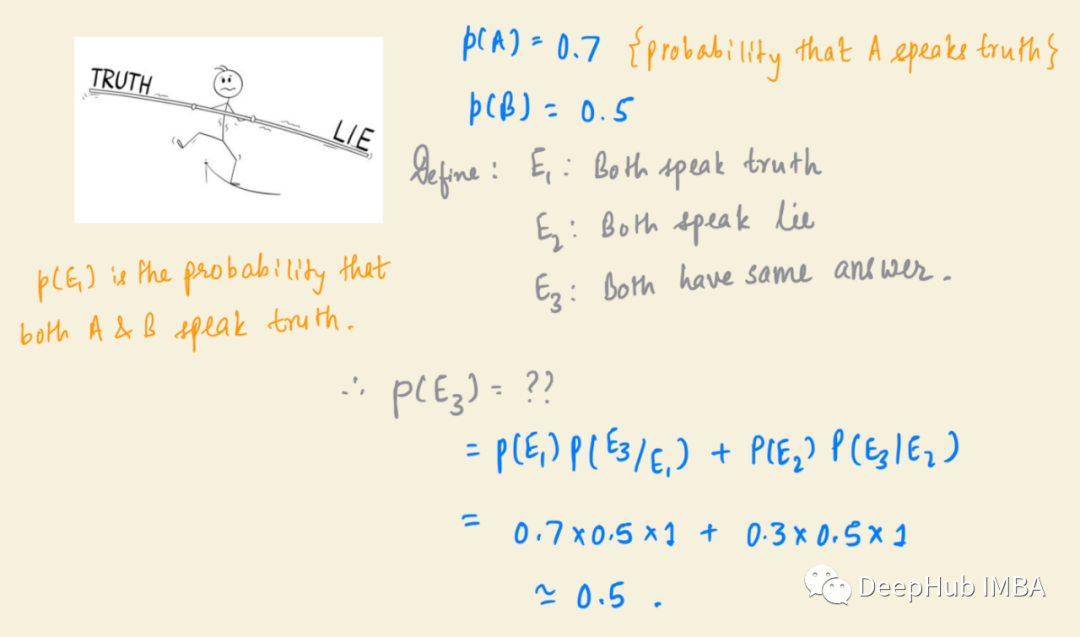 TRUTH
LIE
p(A) = 0.7 {probability that A speaks truth}
p(B) = 0.5
Define : E₁ : Both speak truth
E₂ : Both speak lie
E₃ : Both have same answer.
p(E₁) is the probability that
both A & B speak truth.
∴ p(E₃) = ??
= p(E₁) p(E₃/E₁) + P(E₂) P(E₃|E₂)
= 0.7 x 0.5 x 1 + 0.3 x 0.5 x 1
≃ 0.5 .
DeepHub IMBA